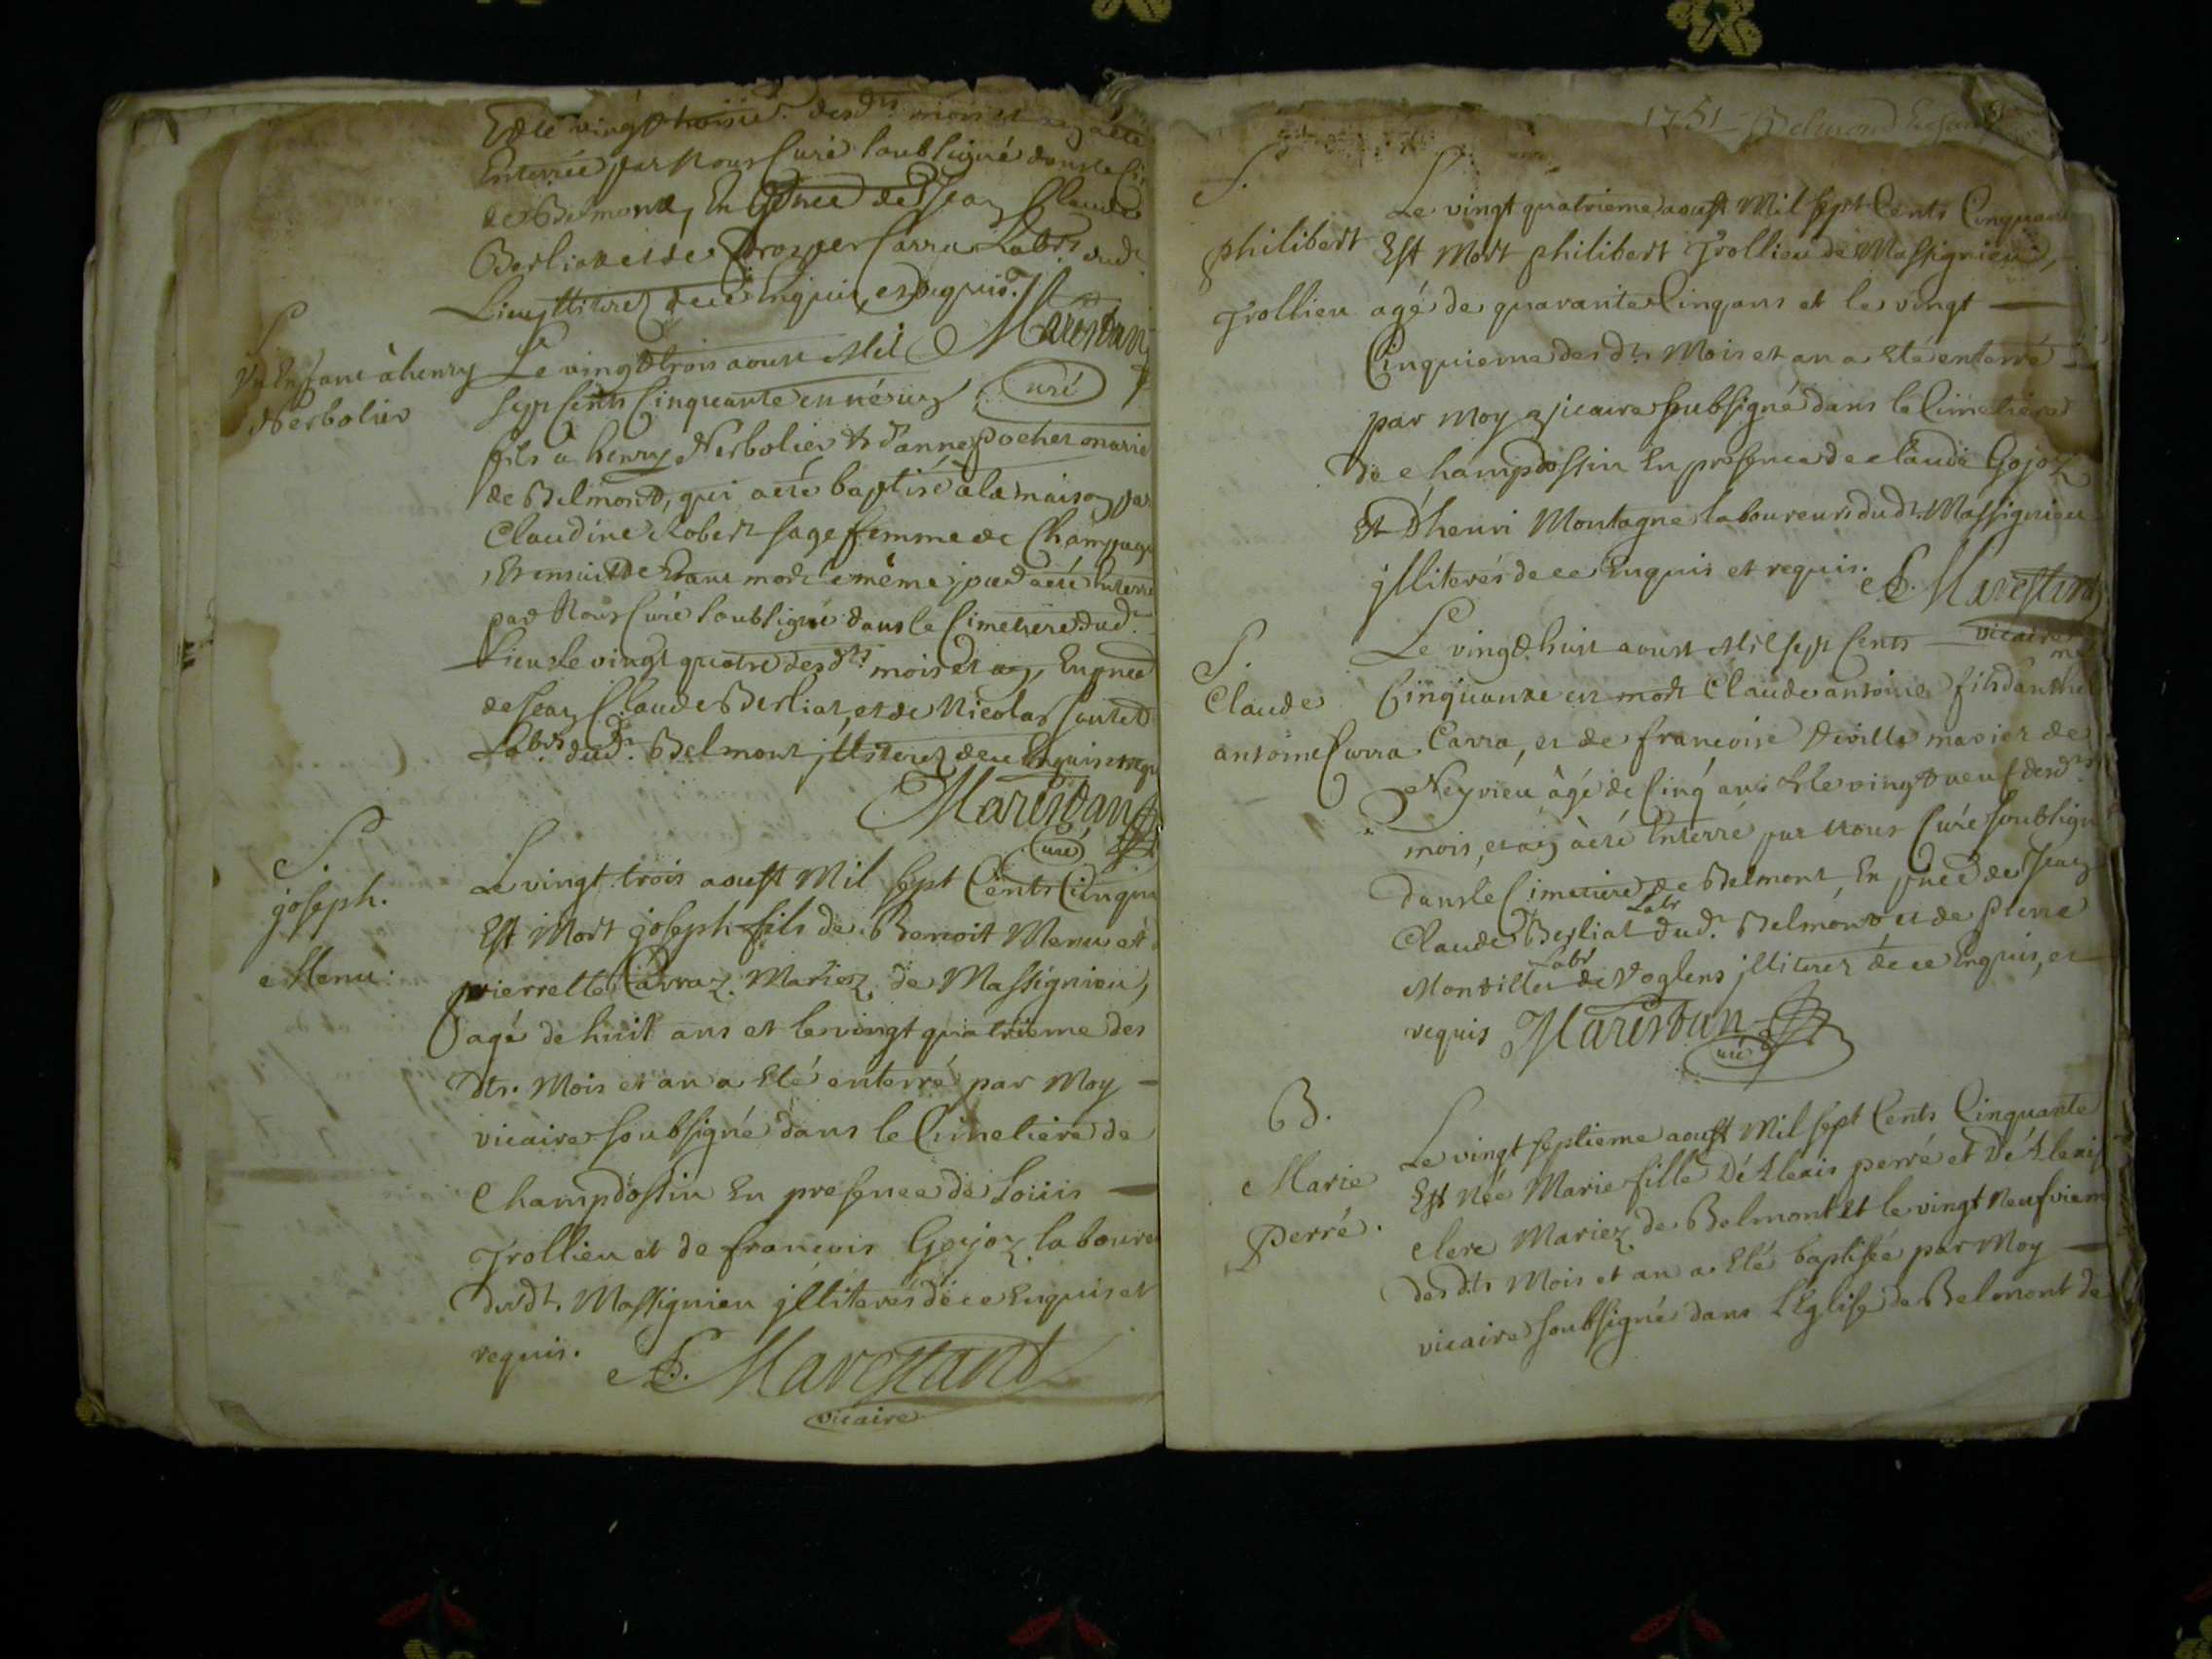 Et le vingt troisie. desdts mois et an a été
Enterrée par Nous Curé soubsigné dans le Ci
de Belmont, En pnce de Jean Claude
Berliat et de Prosper Carra Labrs dudt
Lieu illiterez de ce enquis, et requis. Marestan
Curé
S
Un Enfant à henry
Nerbolier
Le vingt trois aoust Mil
sept Cents Cinquante en né un
fils à henry Nerbolier et d'anne pochet marié
de Belmont, qui a été baptisé à la maison par
Claudine Robert sage femme de Champagn
Et ensuitte Etant mort le même jour a été Enterré
par Nous Curé soubsigné dans le Cimetiere dudt
Lieu le vingt quatre desdts mois et an, En pnce
de Jean Claude Berliat, et de Nicolas
Labrs dudt Belmont illiterez de ce Enquis et requ
Marestan
Curé
S.
joseph.
Menu.
Le vingt trois aoust Mil sept Cents Cinqua
Est Mort joseph fils de Benoit Menu et
pierrette Carraz Mariez de Massignieu,
agé de huit ans et le vingt quatrieme des
dts. Mois et an a Eté enterré par Moy
vicaire soubsigné dans le Cimetiere de
Champdossin En presence de Loüis
Trollieu et de francois Gojoz laboure
dudt. Massignieu jlliterés de ce Enquis et
requis.
Marestand
vicaire
1751 Belmond
S.
philibert
Trollieu
Le vingt quatrieme aoust Mil sept Cents Cinquan
Est Mort philibert Trollieu de Massignieu,
agé de quarante Cinq ans et le vingt
Cinquieme des dts Mois et an a Eté enterré
par Moy vicaire soubsigné dans le Cimetiere
de Champdossin En presence de claude Gojoz
Et D'henri Montagne laboureurs dudt. Massignieu
jlliterés de ce Enquis et requis. Marestand
vicaire
S.
Claude
antoine Carra
Le vingt huit aoust Mil sept Cents
Cinquante est mort Claude antoine fils d'anthel
me
Carra, et de francoise Deville mariez de
Neyrieu âgé de Cinq ans & le vingt neuf desdts
mois, et an à été Enterré par Nous Curé soubsign
dans le Cimetiere de Belmont, En pnce de Jean
Claude Berliat Labr dudt. Belmont et de pierre
Montillet Labr de Voglens jlliterez de ce Enquis, et
requis Marestan
Curé
B.
Marie
Perré.
Le vingt septieme aoust Mil sept Cents Cinquante
Est Née Marie fille D'Alexis perré et D'Alexis
clerc Mariez de Belmont et le vingt Neufviem
des dts Mois et an a Eté baptisée par Moy
vicaire soubsigné dans L'Eglise de Belmont de